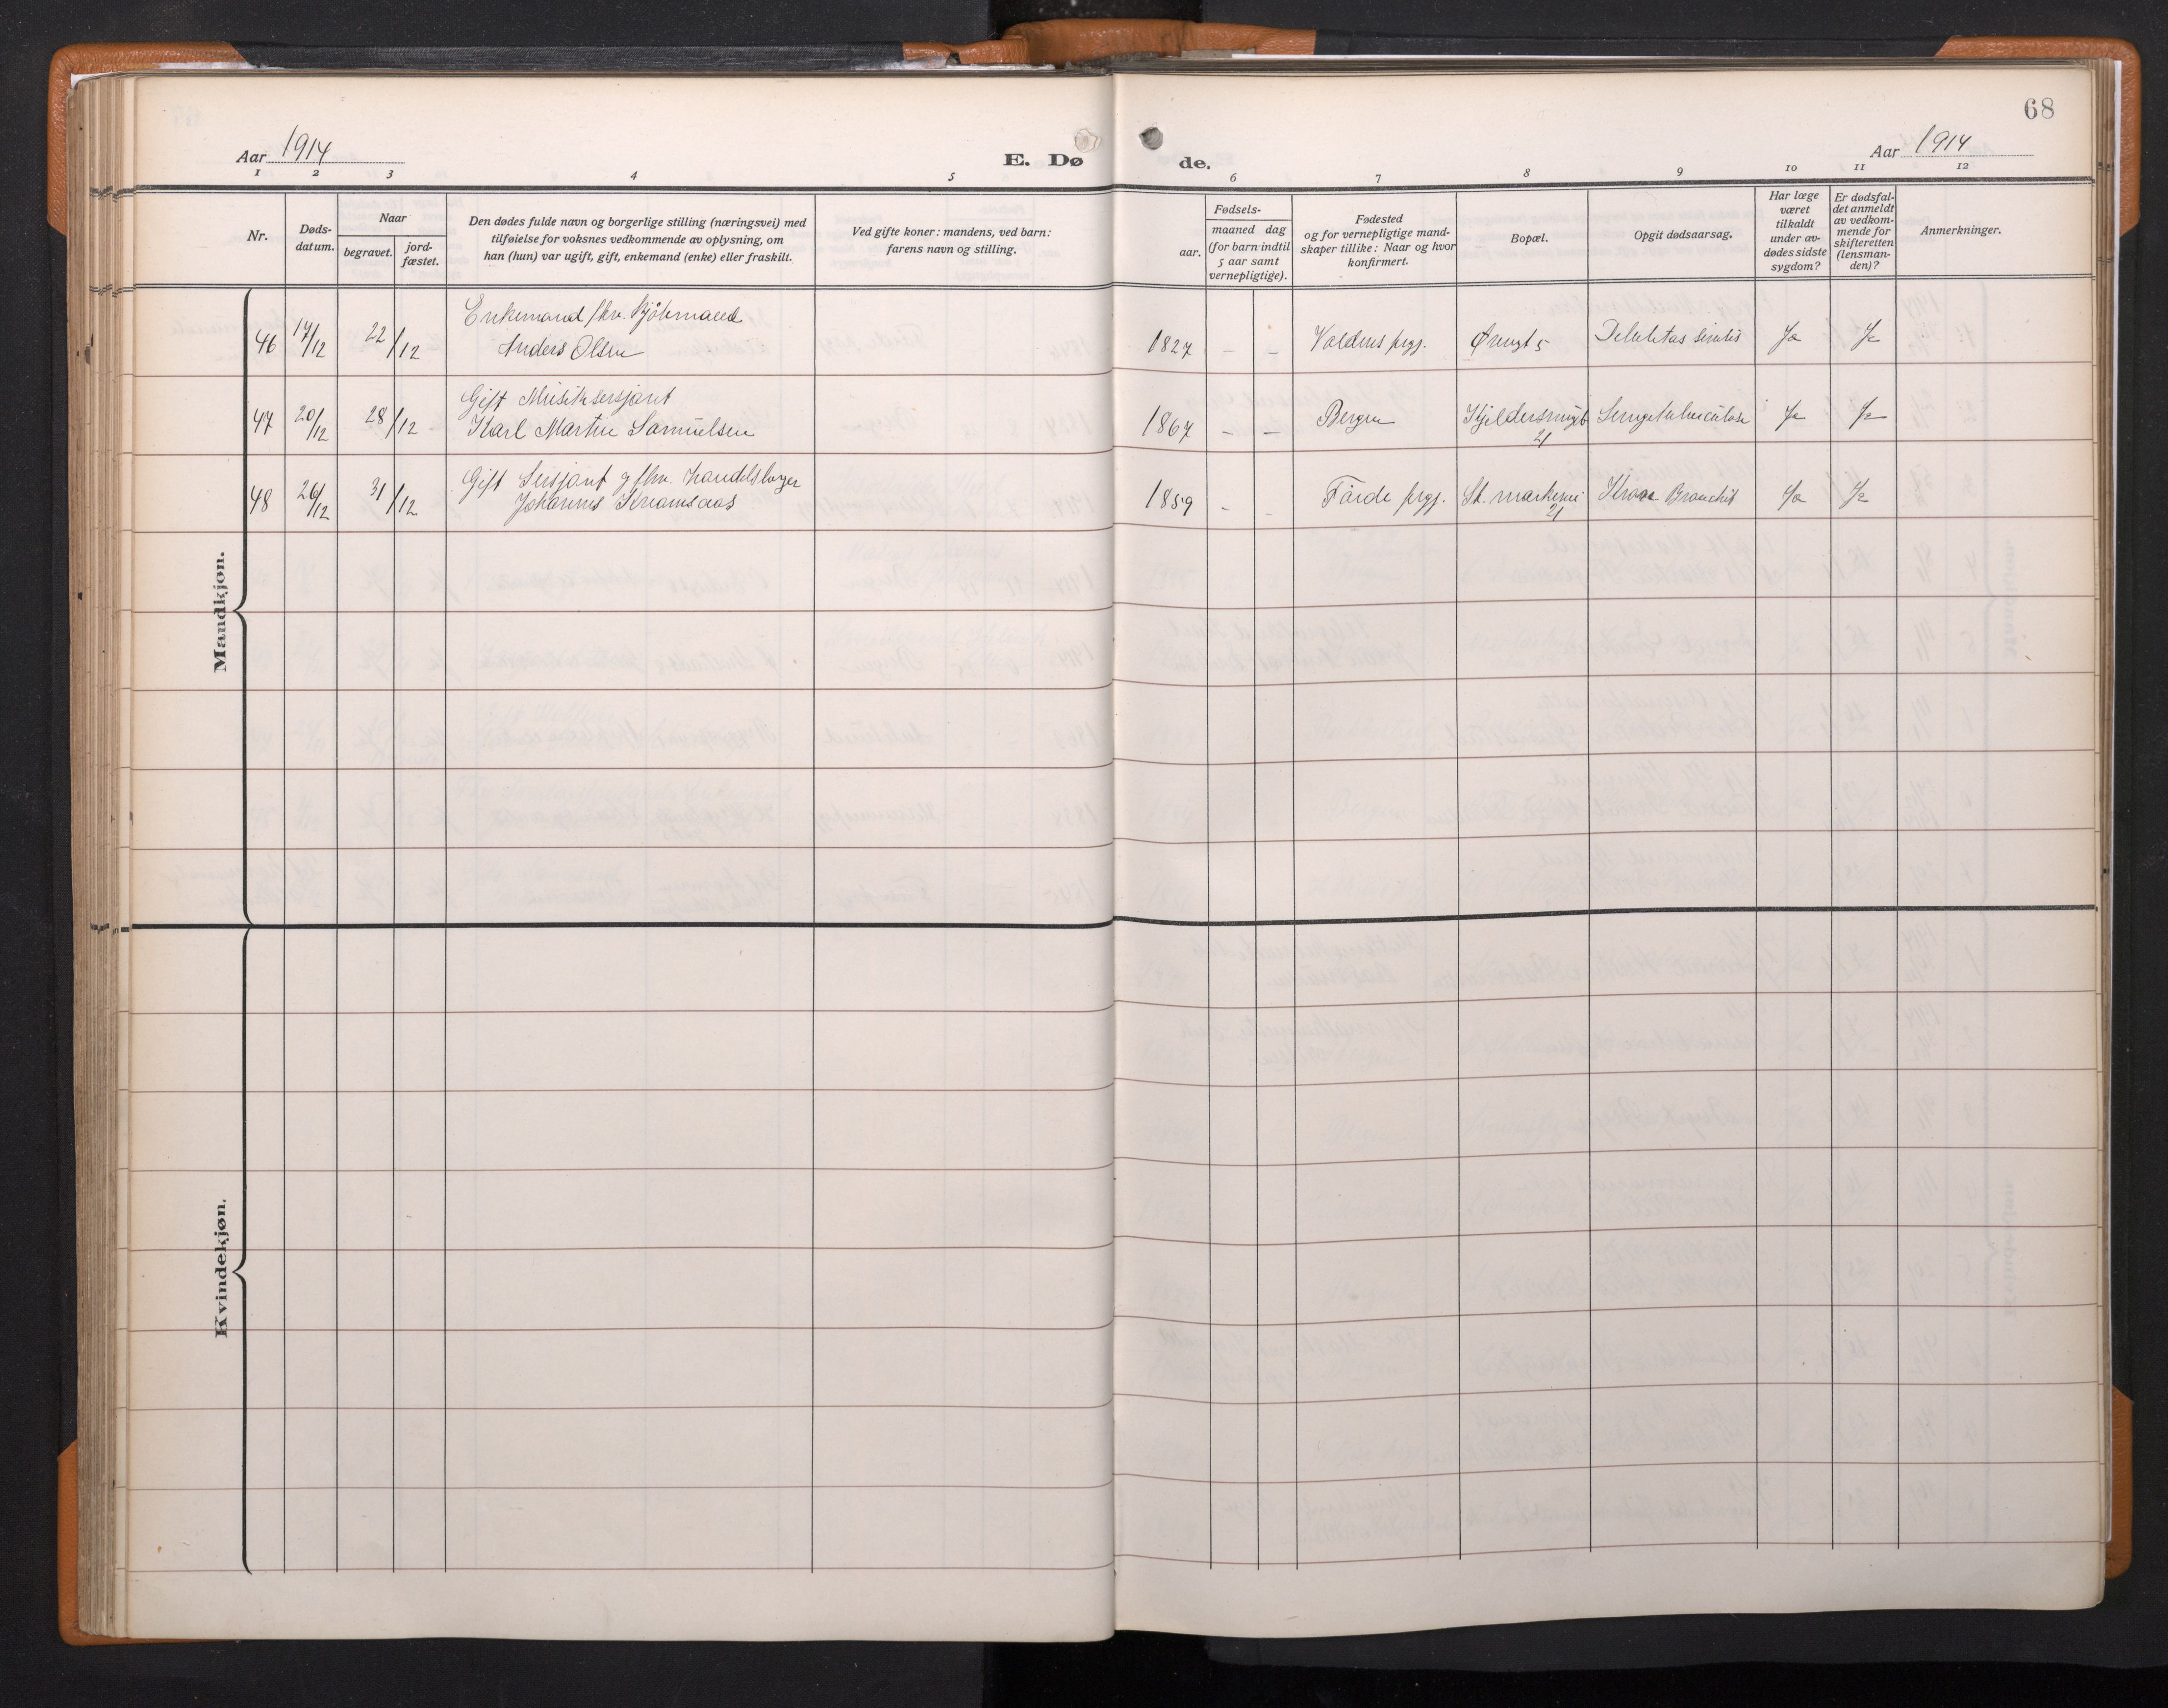 68
Aar 1914
E. Dø
de.
Aar 1914
1 2 3 4 5 6 7 8 9 10 11 12
Nr.
Døds-
datum.
Naar
begravet.
jord-
fæstet.
Den dødes fulde navn og borgerlige stilling (næringsvei) med
tilføielse for voksnes vedkommende av oplysning, om
han (hun) var ugift, gift, enkemand (enke) eller fraskilt.
Ved gifte koner: mandens, ved barn:
farens navn og stilling.
Fødsels-
aar.
maaned dag
(for barn indtil
5 aar samt
vernepligtige).
Fødested
og for vernepligtige mand-
skaper tillike: Naar og hvor
konfirmert.
Bopæl.
Opgit dødsaarsag.
Har læge
været
tilkaldt
under av-
dødes sidste
sygdom?
Er dødsfal-
det anmeldt
av vedkom-
mende for
skifteretten
(lensman-
den)?
Anmerkninger.
Mandkjøn.
Enkemand fhv.
46 14/12 22/12 Anders Olsen 1827 – – prgj. 5 Ja Ja
Gift Musiksersjant
47 20/12 28/12 Karl Martin Samuelsen 1867 – – Bergen Ja Ja
21
Gift Sersjant og fhv.
48 26/12 31/12 Johannes 1859 - - Førde prgj. St. Bronchit Ja Ja
21
Kvindekjøn.